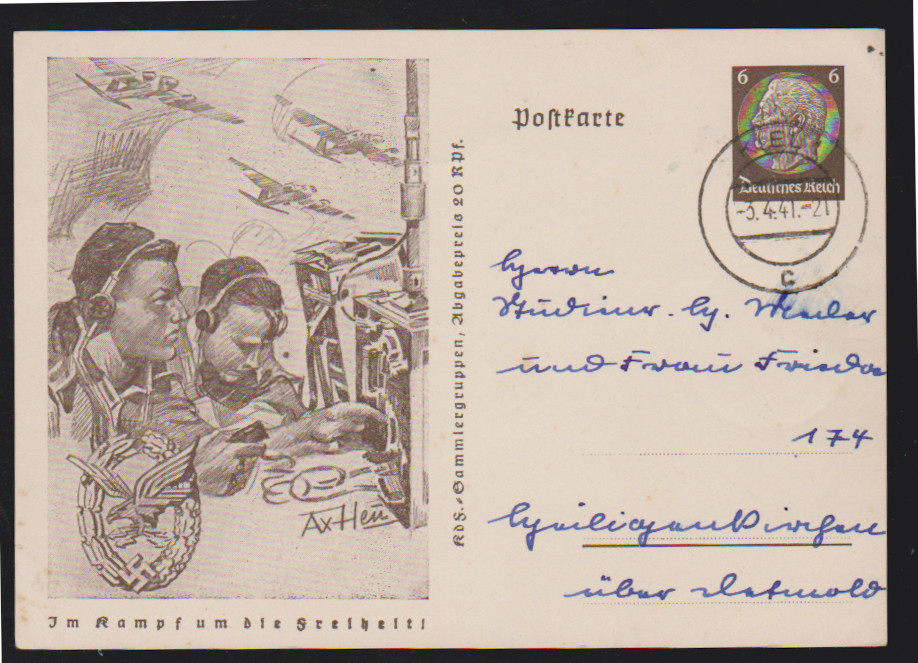 Postkarte
6 6
Deutsches Reich
KIEL
-3.4.41.-21
C
Herrn
Studienr. H. Weder
und Frau Frieda
174
Heiligenkirchen
über Detmold
KdF.-Sammlergruppen, Abgabepreis 20 Rpf.
AxHeu
Im Kampf um die Freiheit!